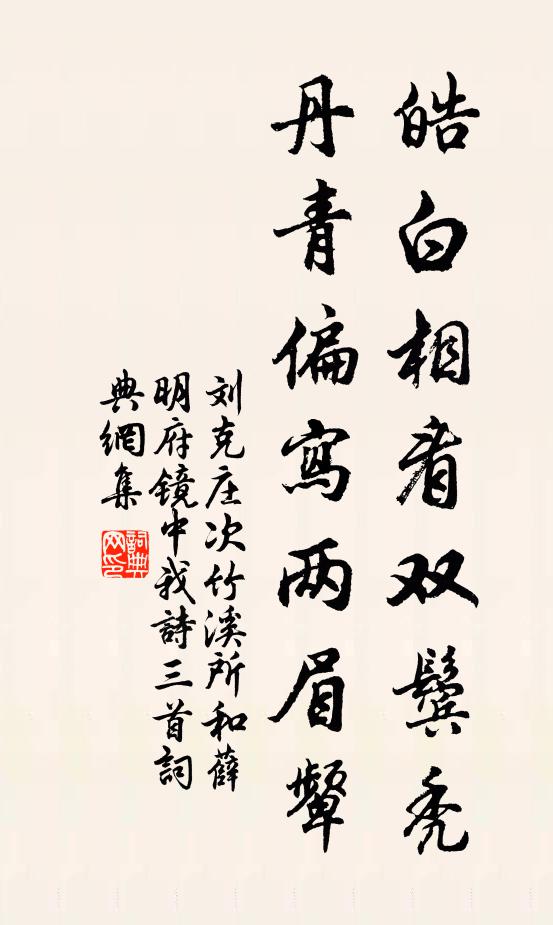 皓白相看双鬓秃
丹青偏写两眉颦
刘克庄次竹溪所和薛
明府镜中我詩三首詞
典網集
詞典网印